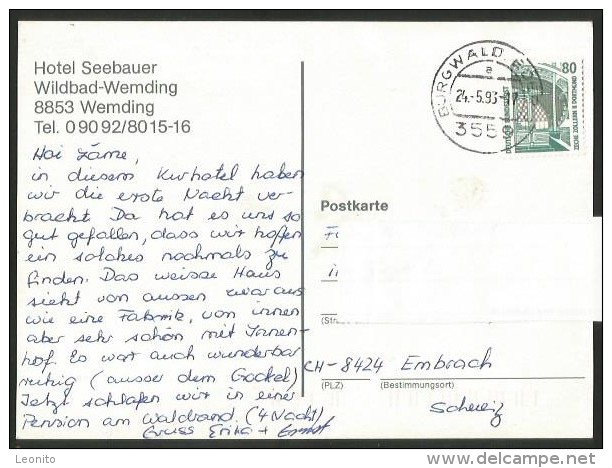 Hotel Seebauer
Wildbad-Wemding
8853 Wemding
Tel. 09092/8015-16
Hoi zäme,
in diesem Kurhotel haben
wir die erste Nacht ver-
bracht. Da hat es uns so
gut gefallen, dass wir hoffen
ein solches nochmals zu
finden. Das weisse Haus
sieht von aussen zwar aus
wie eine Fabrik, von innen
aber sehr schön mit Innen-
hof. Es war auch wunderbar
ruhig (ausser dem Gockel)
Jetzt schlafen wir in einer
Pension am Waldrand (4. Nacht)
Gruss Erika + Ernst
BURGWALD
a
24.-5.93-17
355
80
DEUTSCHE BUNDESPOST
ZECHE ZOLLERN II DORTMUND
Postkarte
(Str
CH-8424 Embrach
(PLZ) (Bestimmungsort)
Schweiz
Leonito
© www.delcampe.net